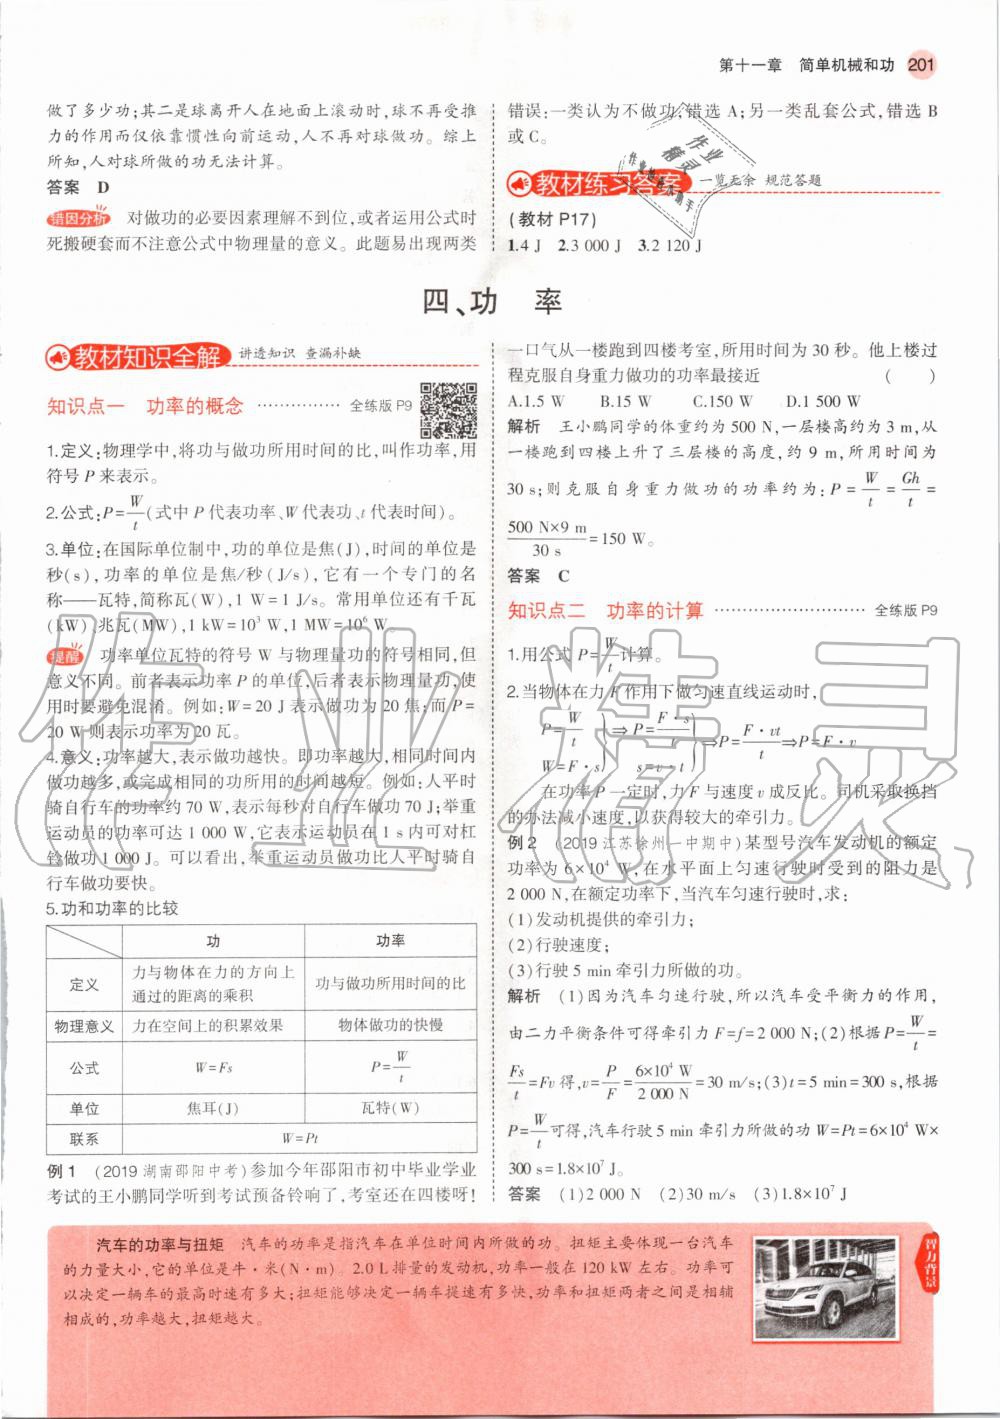 第十一章 简单机械和功 201
做了多少功;其二是球离开人在地面上滚动时,球不再受推
力的作用而仅依靠惯性向前运动,人不再对球做功。综上
所知,人对球所做的功无法计算。
答案 D
错因分析 对做功的必要因素理解不到位,或者运用公式时
死搬硬套而不注意公式中物理量的意义。此题易出现两类
错误:一类认为不做功,错选 A;另一类乱套公式,错选 B
或 C。
教材练习答案 一览无余 规范答题
(教材 P17)
1.4 J 2.3 000 J 3.2 120 J
作业
精灵
四、功 率
教材知识全解 讲透知识 查漏补缺
知识点一 功率的概念 …………… 全练版 P9
1.定义:物理学中,将功与做功所用时间的比,叫作功率,用
符号 P 来表示。
2.公式:P=W/t(式中 P 代表功率、W 代表功、t 代表时间)。
3.单位:在国际单位制中,功的单位是焦(J),时间的单位是
秒(s),功率的单位是焦/秒(J/s),它有一个专门的名
称——瓦特,简称瓦(W),1 W=1 J/s。常用单位还有千瓦
(kW)、兆瓦(MW),1 kW=10³ W,1 MW=10⁶ W。
提醒 功率单位瓦特的符号 W 与物理量功的符号相同,但
意义不同。前者表示功率 P 的单位,后者表示物理量功,使
用时要避免混淆。例如:W=20 J 表示做功为 20 焦;而 P=
20 W 则表示功率为 20 瓦。
4.意义:功率越大,表示做功越快。即功率越大,相同时间内
做功越多,或完成相同的功所用的时间越短。例如:人平时
骑自行车的功率约 70 W,表示每秒对自行车做功 70 J;举重
运动员的功率可达 1 000 W,它表示运动员在 1 s 内可对杠
铃做功 1 000 J。可以看出,举重运动员做功比人平时骑自
行车做功要快。
5.功和功率的比较
功 功率
定义 力与物体在力的方向上通过的距离的乘积 功与做功所用时间的比
物理意义 力在空间上的积累效果 物体做功的快慢
公式 W=Fs P=W/t
单位 焦耳(J) 瓦特(W)
联系 W=Pt
例 1 (2019 湖南邵阳中考)参加今年邵阳市初中毕业学业
考试的王小鹏同学听到考试预备铃响了,考室还在四楼呀!
一口气从一楼跑到四楼考室,所用时间为 30 秒。他上楼过
程克服自身重力做功的功率最接近 ( )
A.1.5 W B.15 W C.150 W D.1 500 W
解析 王小鹏同学的体重约为 500 N,一层楼高约为 3 m,从
一楼跑到四楼上升了三层楼的高度,约 9 m,所用时间为
30 s;则克服自身重力做功的功率约为:P=W/t=Gh/t=
500 N×9 m/30 s=150 W。
答案 C
知识点二 功率的计算 ……………………… 全练版 P9
1.用公式 P=W/t计算。
2.当物体在力 F 作用下做匀速直线运动时,
P=W/t
W=F·s}⇒P=F·s/t
s=v·t}⇒P=F·vt/t⇒P=F·v
在功率 P 一定时,力 F 与速度 v 成反比。司机采取换挡
的办法减小速度,以获得较大的牵引力。
例 2 (2019 江苏徐州一中期中)某型号汽车发动机的额定
功率为 6×10⁴ W,在水平面上匀速行驶时受到的阻力是
2 000 N,在额定功率下,当汽车匀速行驶时,求:
(1)发动机提供的牵引力;
(2)行驶速度;
(3)行驶 5 min 牵引力所做的功。
解析 (1)因为汽车匀速行驶,所以汽车受平衡力的作用,
由二力平衡条件可得牵引力 F=f=2 000 N;(2)根据 P=W/t=
Fs/t=Fv 得,v=P/F=6×10⁴ W/2 000 N=30 m/s;(3)t=5 min=300 s,根据
P=W/t可得,汽车行驶 5 min 牵引力所做的功 W=Pt=6×10⁴ W×
300 s=1.8×10⁷ J。
答案 (1)2 000 N (2)30 m/s (3)1.8×10⁷ J
汽车的功率与扭矩 汽车的功率是指汽车在单位时间内所做的功。扭矩主要体现一台汽车
的力量大小,它的单位是牛·米(N·m)。2.0 L 排量的发动机,功率一般在 120 kW 左右。功率可
以决定一辆车的最高时速有多大;扭矩能够决定一辆车提速有多快,功率和扭矩两者之间是相辅
相成的,功率越大,扭矩越大。
智力背景
作业精灵